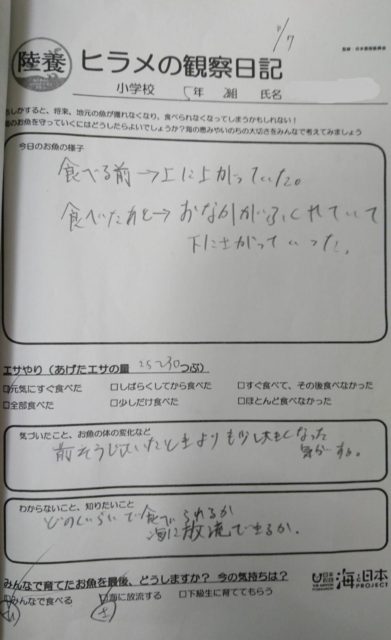 2/7
陸養
ヒラメの観察日記
小学校 5年 2組 氏名
もしかすると、将来、地元の魚が獲れなくなり、食べられなくなってしまうかもしれない!
のお魚を守っていくにはどうしたらよいでしょうか?海の恵みやいのちの大切さをみんなで考えてみましょう
今日のお魚の様子
食べる前→上に上がっていた。
食べたあと→おなかがふくれていて
下にさがっていった。
エサやり(あげたエサの量 25230つぶ)
□元気にすぐ食べた □しばらくしてから食べた □すぐ食べて、その後食べなかった
□全部食べた □少しだけ食べた □ほとんど食べなかった
気づいたこと、お魚の体の変化など
前そうじしていたときよりも少し大きくなった
気がする。
わからないこと、知りたいこと
どのくらいで食べられるか
海に放流できるか。
みんなで育てたお魚を最後、どうしますか? 今の気持ちは?
みんなで食べる □海に放流する □下級生に育ててもらう
日本財団
海と日本
PROJECT